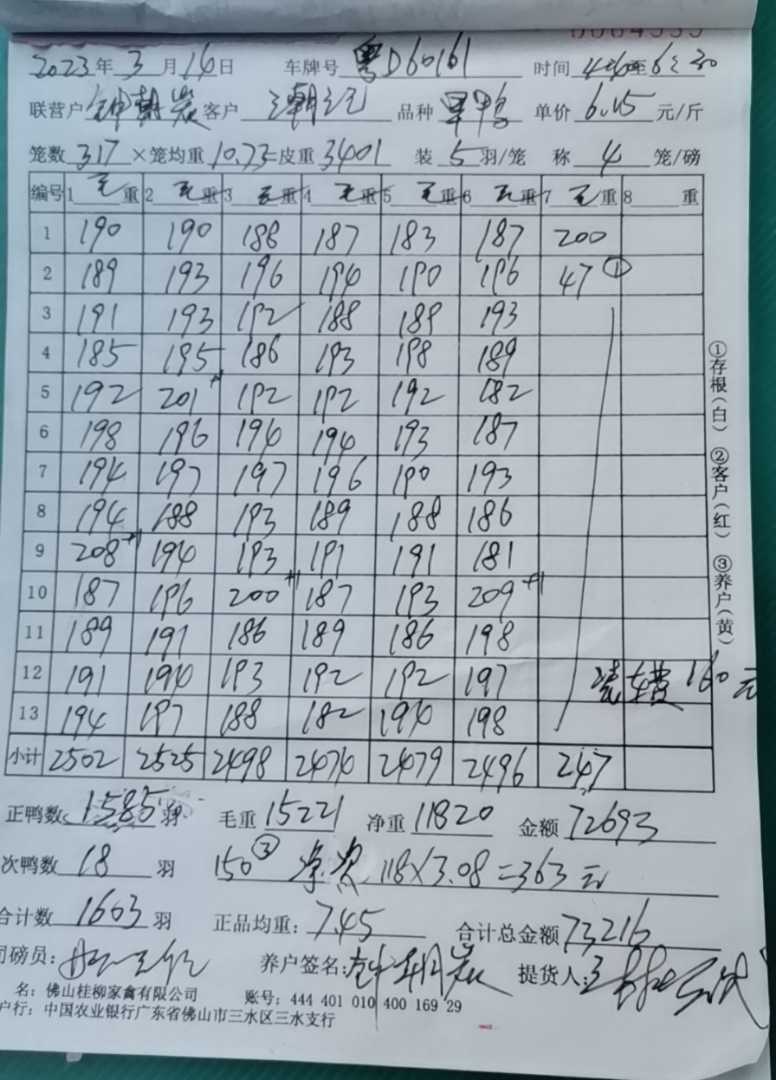 2023年 3 月 14 日 车牌号 粤D60161 时间
联营户 钟朝炭 客户 品种 单价 6.15 元/斤
笼数 317 ×笼均重 10.73 =皮重 3401 装 5 羽/笼 称 4 笼/磅
编号 1 毛重 2 毛重 3 毛重 4 毛重 5 毛重 6 毛重 7 毛重 8 重
1 190 190 188 187 183 187 200
2 189 193 196 194 190 196 47 ①
3 191 193 192 188 189 193
4 185 195 186 193 198 189
5 192 201 +1 192 192 192 182
6 198 196 194 194 193 187
7 194 197 197 196 190 193
8 194 188 193 189 188 186
9 208 +1 194 193 191 191 181
10 187 196 200 +1 187 193 209 +1
11 189 197 186 189 186 198
12 191 194 193 192 192 197 160元
13 194 197 188 182 194 198
小计 2502 2525 2498 2474 2479 2496 247
①存根(白) ②客户(红) ③养户(黄)
正鸭数 1585 羽 毛重 15221 净重 11820 金额 72693
次鸭数 18 羽 150 ③ 118×3.08=363元
合计数 1603 羽 正品均重: 7.45 合计总金额 73216
司磅员: 养户签名: 钟朝炭 提货人:
名: 佛山桂柳家禽有限公司 账号: 444 401 010 400 169 29
户行: 中国农业银行广东省佛山市三水区三水支行